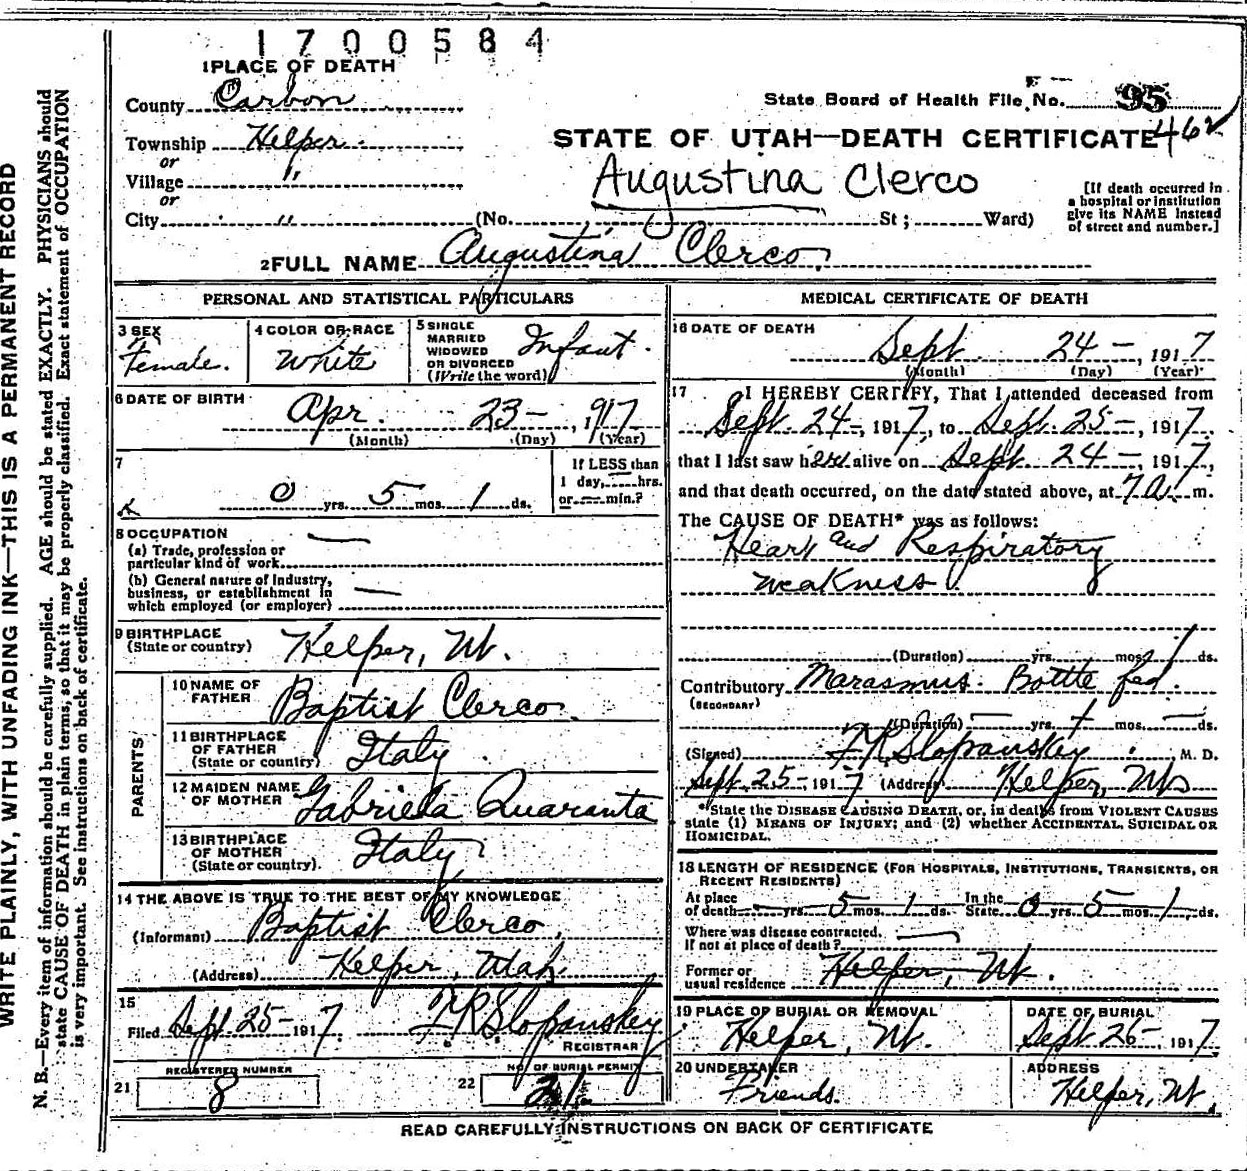 1700584
1 PLACE OF DEATH
County Carbon
State Board of Health File No. 95
Township Helper
STATE OF UTAH—DEATH CERTIFICATE 462
or
Village "
Augustina Clerco
[If death occurred in
a hospital or institution
give its NAME instead
of street and number.]
or
City " (No. St; Ward)
2 FULL NAME Augustina Clerco
PERSONAL AND STATISTICAL PARTICULARS
3 SEX
Female.
4 COLOR OR RACE
White
5 SINGLE
MARRIED
WIDOWED
OR DIVORCED
(Write the word)
Infant.
6 DATE OF BIRTH
Apr. 23-, 1917
(Month) (Day) (Year)
7
0 yrs. 5 mos. 1 ds.
If LESS than
1 day, hrs.
or min.?
8 OCCUPATION
(a) Trade, profession or
particular kind of work
(b) General nature of industry,
business, or establishment in
which employed (or employer)
9 BIRTHPLACE
(State or country)
Helper, Ut.
PARENTS
10 NAME OF
FATHER
Baptist Clerco.
11 BIRTHPLACE
OF FATHER
(State or country)
Italy
12 MAIDEN NAME
OF MOTHER
Gabriela Quaranta
13 BIRTHPLACE
OF MOTHER
(State or country).
Italy
14 THE ABOVE IS TRUE TO THE BEST OF MY KNOWLEDGE
(Informant) Baptist Clerco,
(Address) Helper, Utah
15
Filed Sept. 25-1917. F.R. Slopansky
REGISTRAR
REGISTERED NUMBER
21 8
NO. OF BURIAL PERMIT
22
MEDICAL CERTIFICATE OF DEATH
16 DATE OF DEATH
Sept 24-, 1917
(Month) (Day) (Year)
17 I HEREBY CERTIFY, That I attended deceased from
Sept. 24-, 1917, to Sept. 25-, 1917.
that I last saw her alive on Sept. 24-, 1917,
and that death occurred, on the date stated above, at 7 a. m.
The CAUSE OF DEATH* was as follows:
Heart and Respiratory
weakness.
(Duration) yrs. mos. 1 ds.
Contributory Marasmus. Bottle fed.
(SECONDARY)
(Duration) yrs. mos. ds.
(Signed) F.R. Slopansky. M. D.
Sept. 25-1917 (Address) Helper, Ut
*State the DISEASE CAUSING DEATH, or, in deaths from VIOLENT CAUSES
state (1) MEANS OF INJURY; and (2) whether ACCIDENTAL, SUICIDAL OR
HOMICIDAL.
18 LENGTH OF RESIDENCE (FOR HOSPITALS, INSTITUTIONS, TRANSIENTS, OR
RECENT RESIDENTS)
At place In the
of death yrs. 5 mos. 1 ds. State 0 5 mos. 1 ds.
Where was disease contracted.
If not at place of death?
Former or
usual residence Helper, Ut.
19 PLACE OF BURIAL OR REMOVAL
Helper, Ut.
DATE OF BURIAL
Sept 26-, 1917
20 UNDERTAKER
Friends.
ADDRESS
Helper, Ut.
READ CAREFULLY INSTRUCTIONS ON BACK OF CERTIFICATE
WRITE PLAINLY, WITH UNFADING INK—THIS IS A PERMANENT RECORD
N. B.—Every item of information should be carefully supplied. AGE should be stated EXACTLY. PHYSICIANS should
state CAUSE OF DEATH in plain terms, so that it may be properly classified. Exact statement of OCCUPATION
is very important. See instructions on back of certificate.